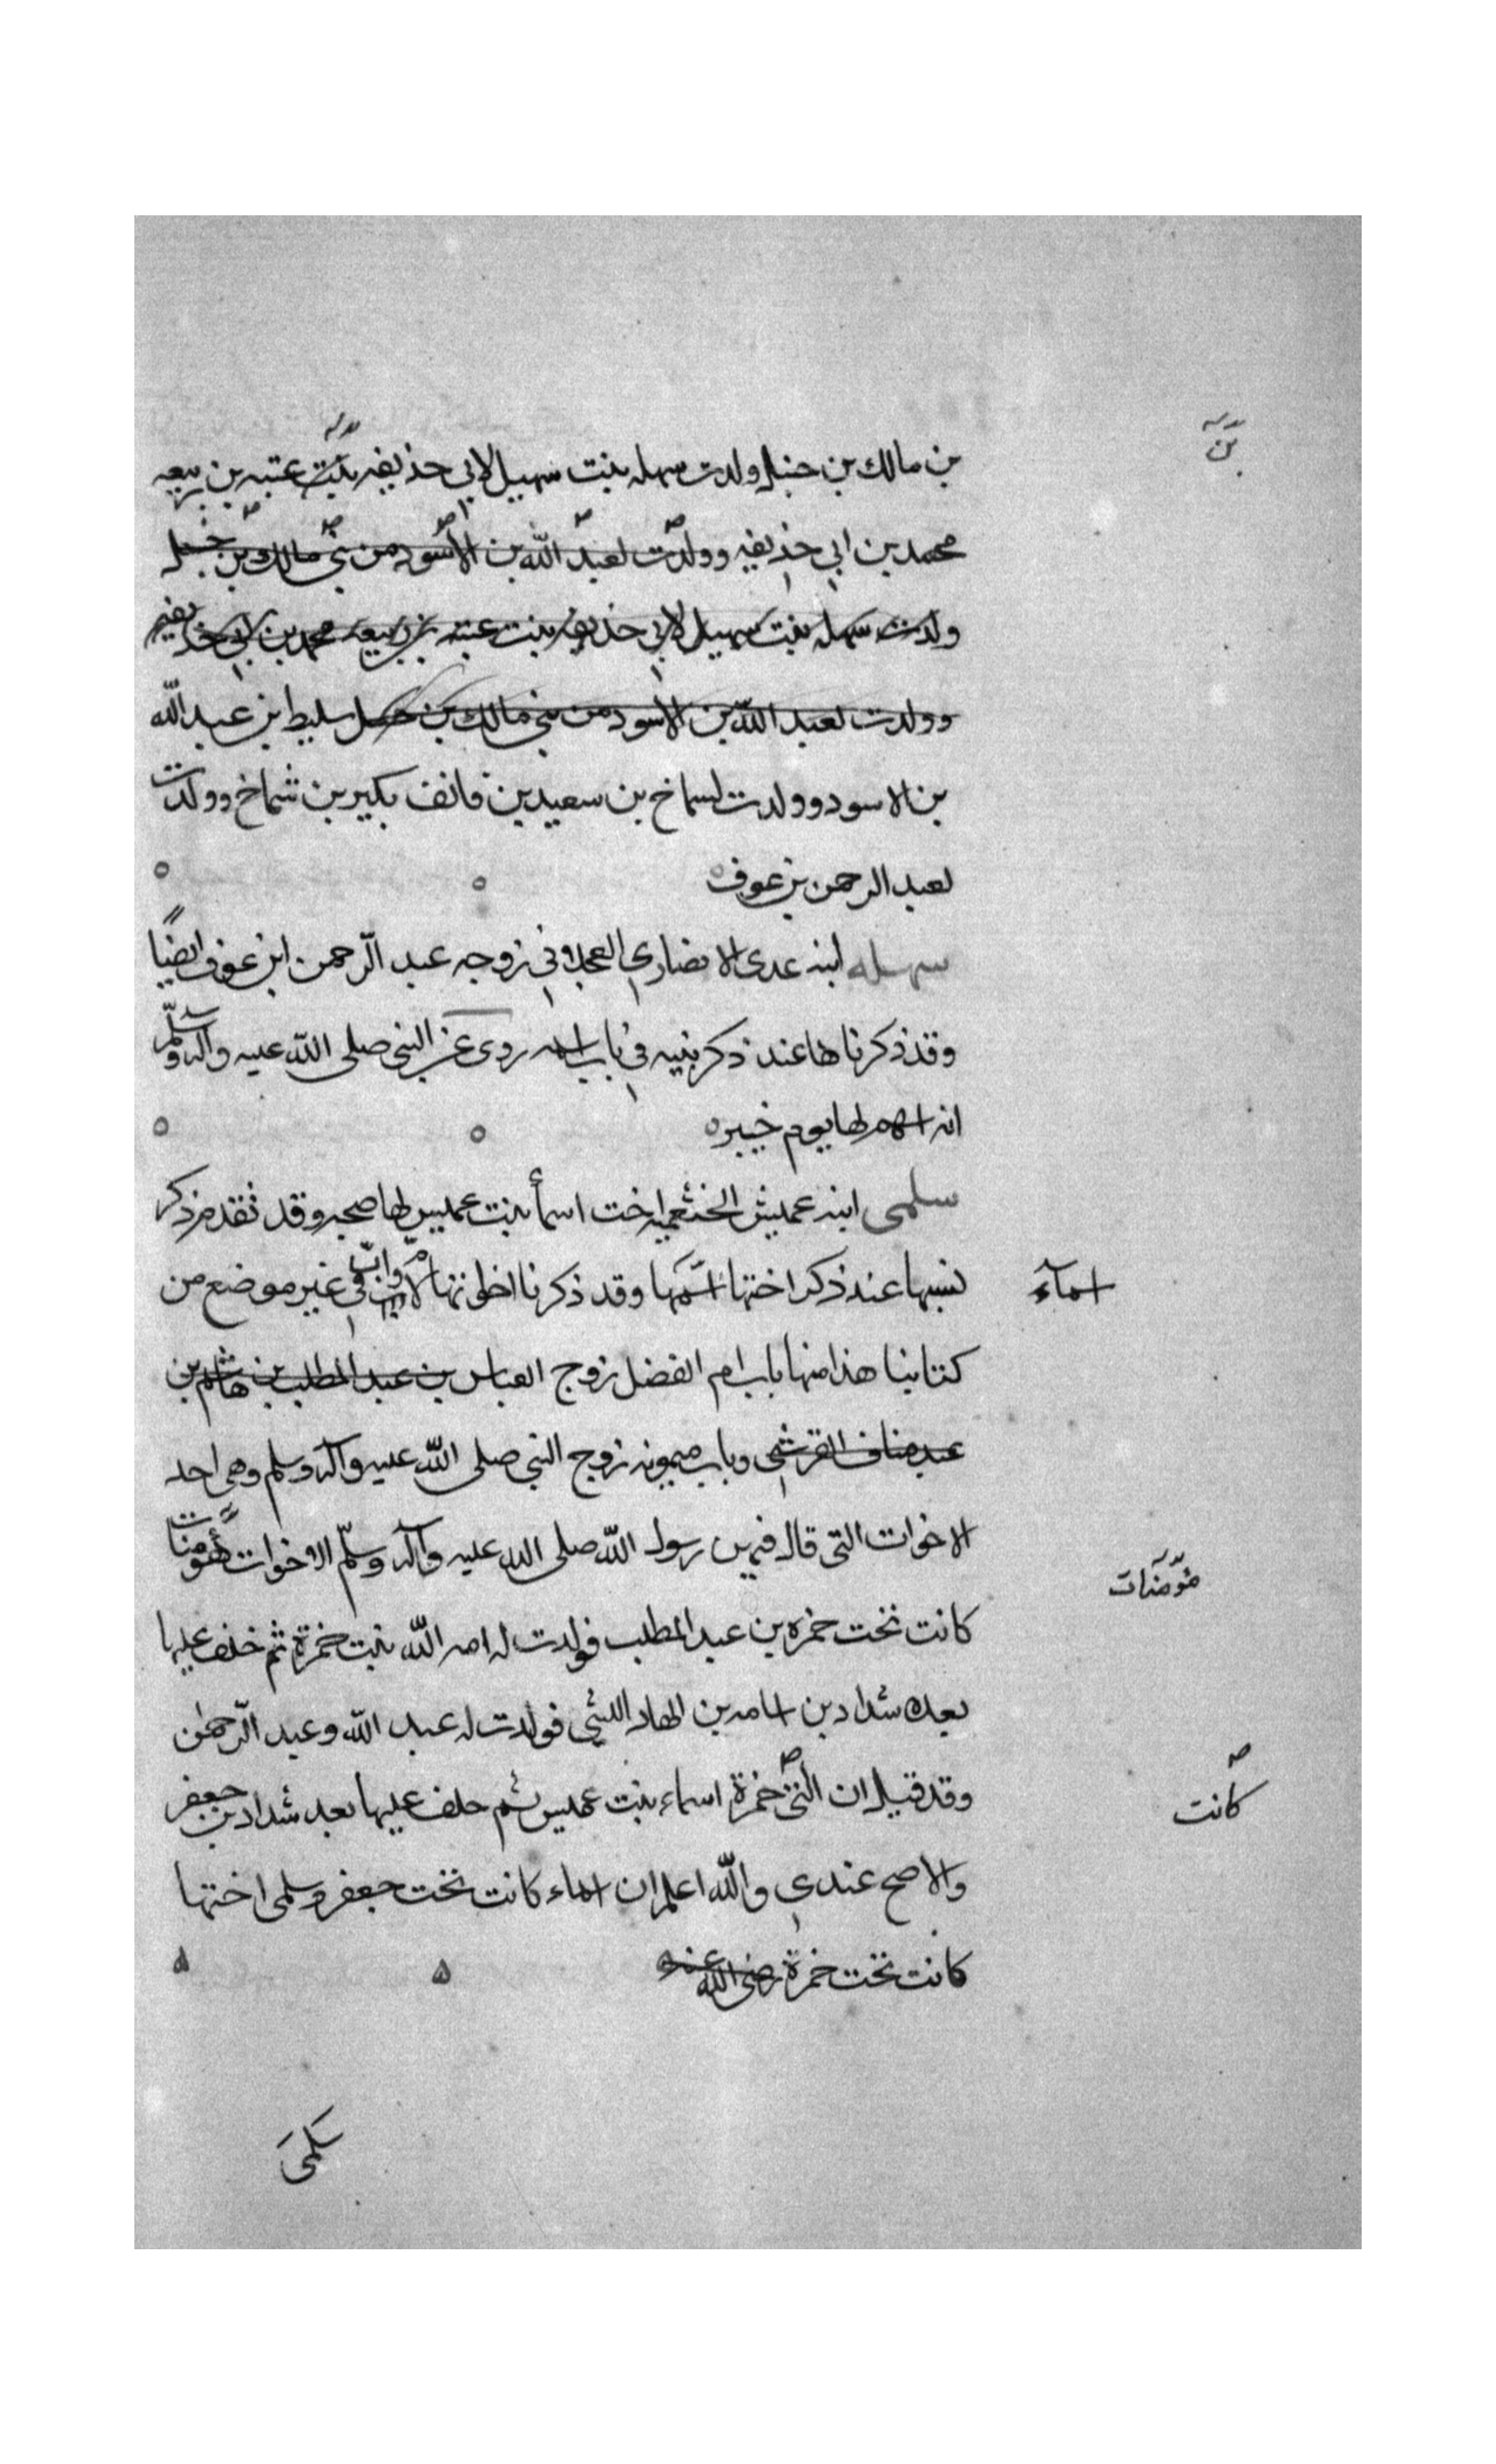 بن مالك بن حنبل ولدت سهله بنت سهيل لابي حذيفه بنت عتبه بن ربيعه
بن
محمد بن ابي حذيفه وولدت لعبد الله بن الاسود من بني مالك بن حسل
ولدت سهله بنت سهيل لابي حذيفه بنت عتبه بن ربيعه محمد بن ابي حذيفه
وولدت لعبد الله بن الاسود من بني مالك بن حسل سليط بن عبد الله
بن الاسود وولدت لسماخ بن سعيد بن قانف بكير بن شماخ وولدت
لعبد الرحمن بن عوف
سهله ابنه عدى الانصاري العجلاني زوجه عبد الرّحمن ابن عوف ايضًا
وقد ذكرنا ها عند ذكر بنيه في باب اسمه روى عن النبي صلى الله عليه وآله وسلّم
انه اسهم لها يوم خيبر
سلمى ابنه عميش الخثعميه اخت اسمأ بنت عميس لها صحبه وقد تقدم ذكر
نسبها عند ذكر اختها اسمها وقد ذكرنا اخواتها لاب وامّ في غير موضع من
اسمآء
كتابنا هذا منها باب ام الفضل زوج العباس بن عبد المطلب بن هاشم بن
عبد مناف القرشي وباب ميمونه زوج النبي صلى الله عليه وآله وسلم وهي احد
الاخوات التى قال فيهن رسول الله صلى الله عليه وآله وسلّم الاخوات مؤمنات
مؤمنات
كانت تحت حمزه بن عبد المطلب فولدت له امه الله بنت حمزة ثم خلف عليها
بعده شداد بن اسامه بن الهاد الليثي فولدت له عبد الله وعبد الرّحمن
وقد قيل ان التي حمزة اسماء بنت عميس ثم خلف عليها بعد شداد بن جعفر
كانت
والاصح عندي والله اعلم ان اسماء كانت تحت جعفر وسلمى اختها
كانت تحت حمزة رضى الله عنه
سلمى